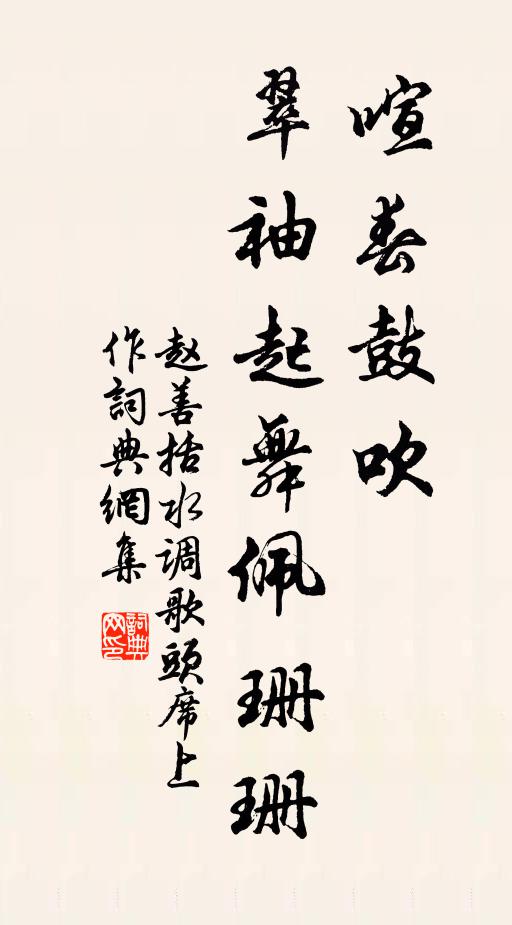 喧春鼓吹
翠袖起舞佩珊珊
赵善括水调歌頭席上
作詞典網集
詞典
网印